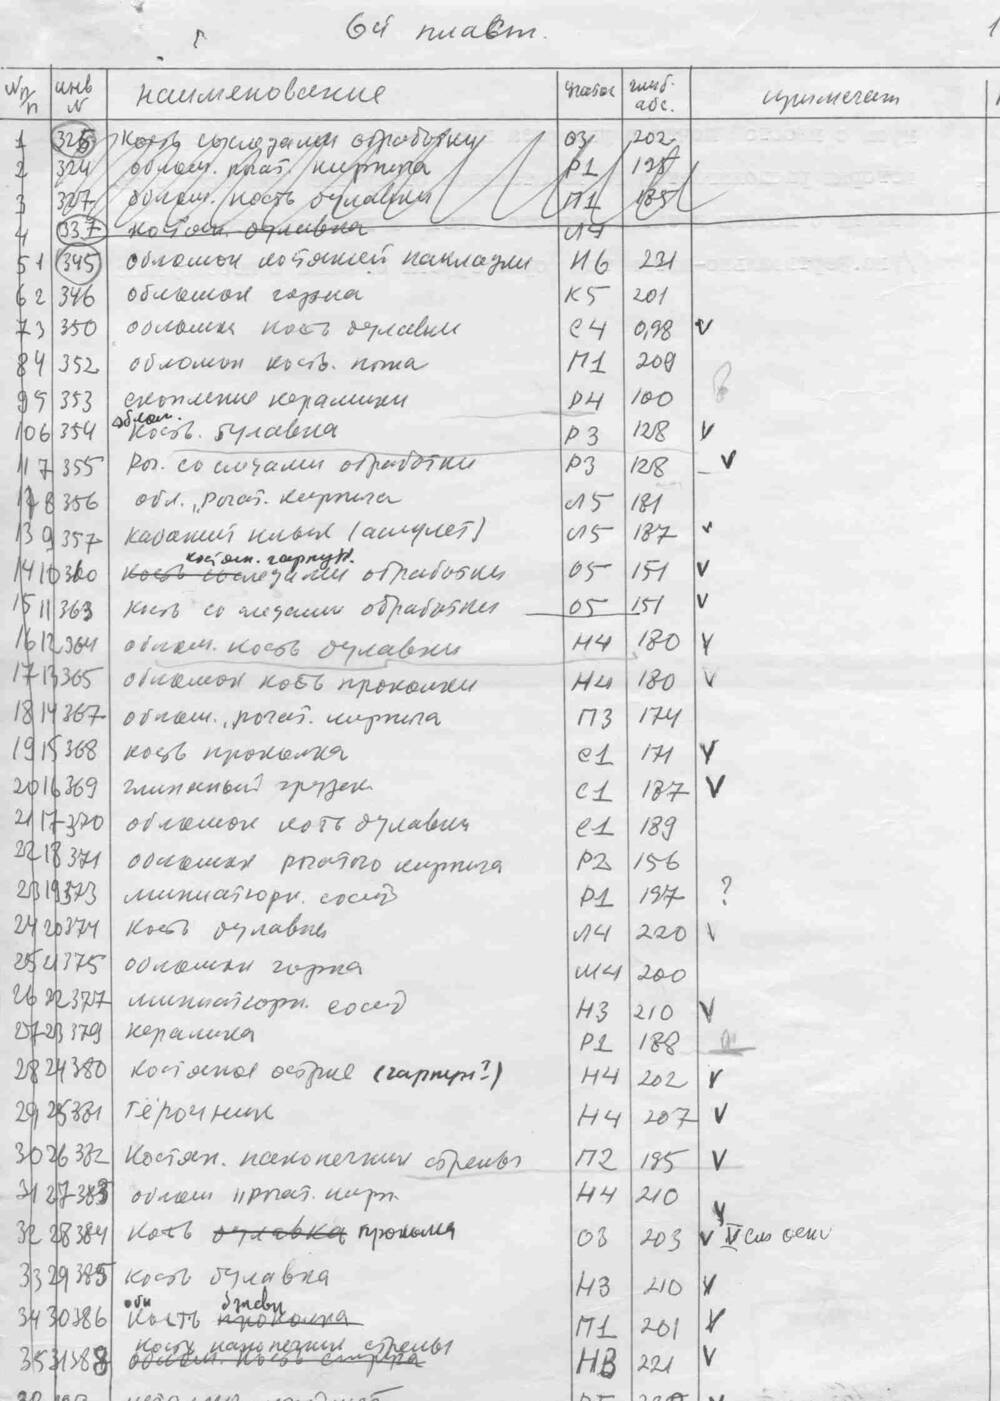 6й пласт.
1
№ п/п инв № наименование участок глуб. абс. примечат
1 325 Кость со следами обработки О3 202
2 324 облом. рогат. кирпича Р1
3 327 облом. кость булавки П1 185
4 337 костян. булавка Л4
5 1 345 обломок костяной накладки И6 231
6 2 346 обломок горна К5 201
7 3 350 обломки кость булавки С4 0,98 v
8 4 352 обломок кость. ножа П1 209
9 5 353 скопление керамики Р4 100
10 6 354 облом. кость. булавка Р3 128 v
11 7 355 Рог. со следами обработки Р3 128 v
12 8 356 обл. „рогат. кирпича Л5 181
13 9 357 кабаний клык (амулет) Л5 187 v
костян. гарпун.
14 10 360 кость со следами обработки О5 151 v
15 11 363 кость со следами обработки О5 151 v
16 12 364 облом. кость булавки Н4 180 v
17 13 365 обломок кость проколки Н4 180 v
18 14 367 облом. „рогат. кирпича П3 174
19 15 368 кость проколка С1 171 v
20 16 369 глиняный грузик С1 187 v
21 17 370 обломок кость булавки С1 189
22 18 371 обломки рогатого кирпича Р2 156
23 19 373 миниатюрн. сосуд Р1 197 ?
24 20 374 Кость булавка Л4 220 v
25 21 375 обломки горна М4 200
26 22 377 миниатюрн. сосуд Н3 210 v
27 23 379 керамика Р1 188
28 24 380 Костяное острие (гарпун?) Н4 202 v
29 25 381 тёрочник Н4 207 v
30 26 382 Костян. наконечник стрелы П2 195 v
31 27 383 облом „рогат. кирп. Н4 210 v
32 28 384 Кость булавка проколка О3 203 v IV
33 29 385 кость булавка Н3 210 v
обл булавки
34 30 386 Кость проколка П1 201 v
кость наконечник стрелы
35 31 388 облом. кость НВ 221 v